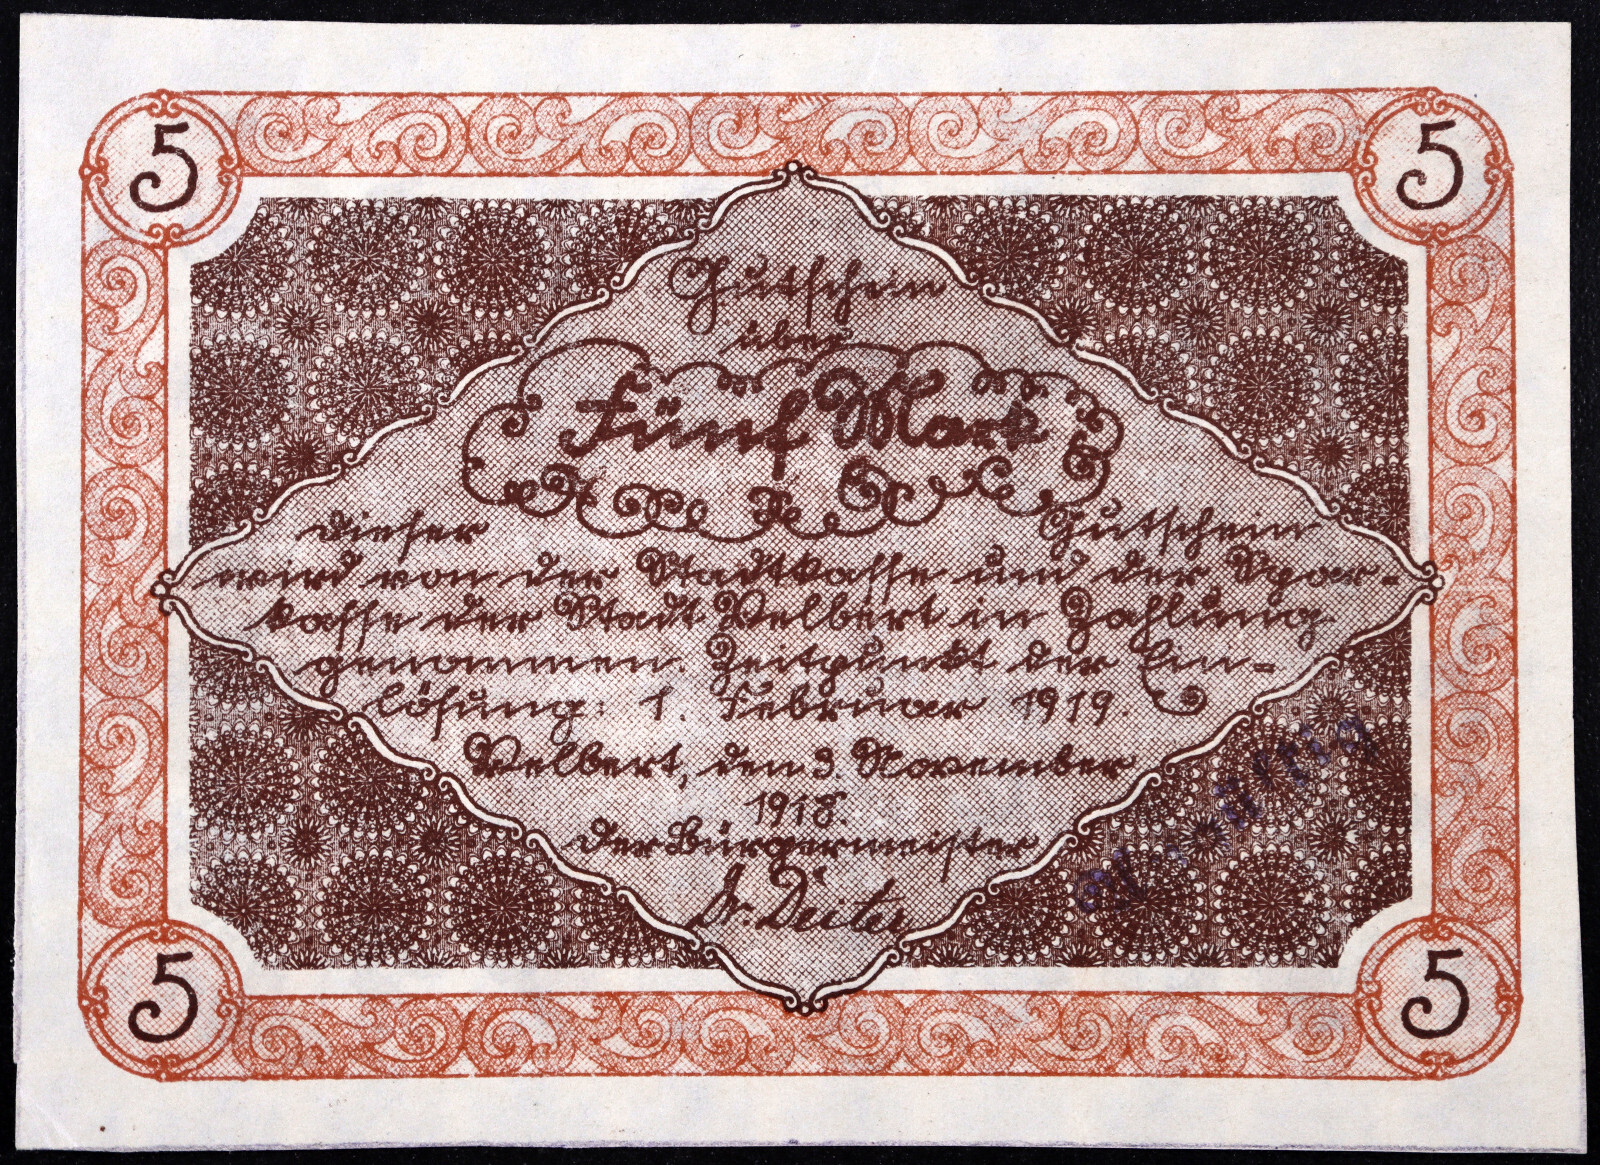 5 5
Gutschein
über
Fünf Mark
dieser Gutschein
wird von der Stadtkasse und der Spar-
kasse der Stadt Velbert in Zahlung
genommen. Zeitpunkt der Ein-
lösung: 1. Februar 1919.
Velbert, den 3. November
1918.
Der Bürgermeister
Dr.
5 5